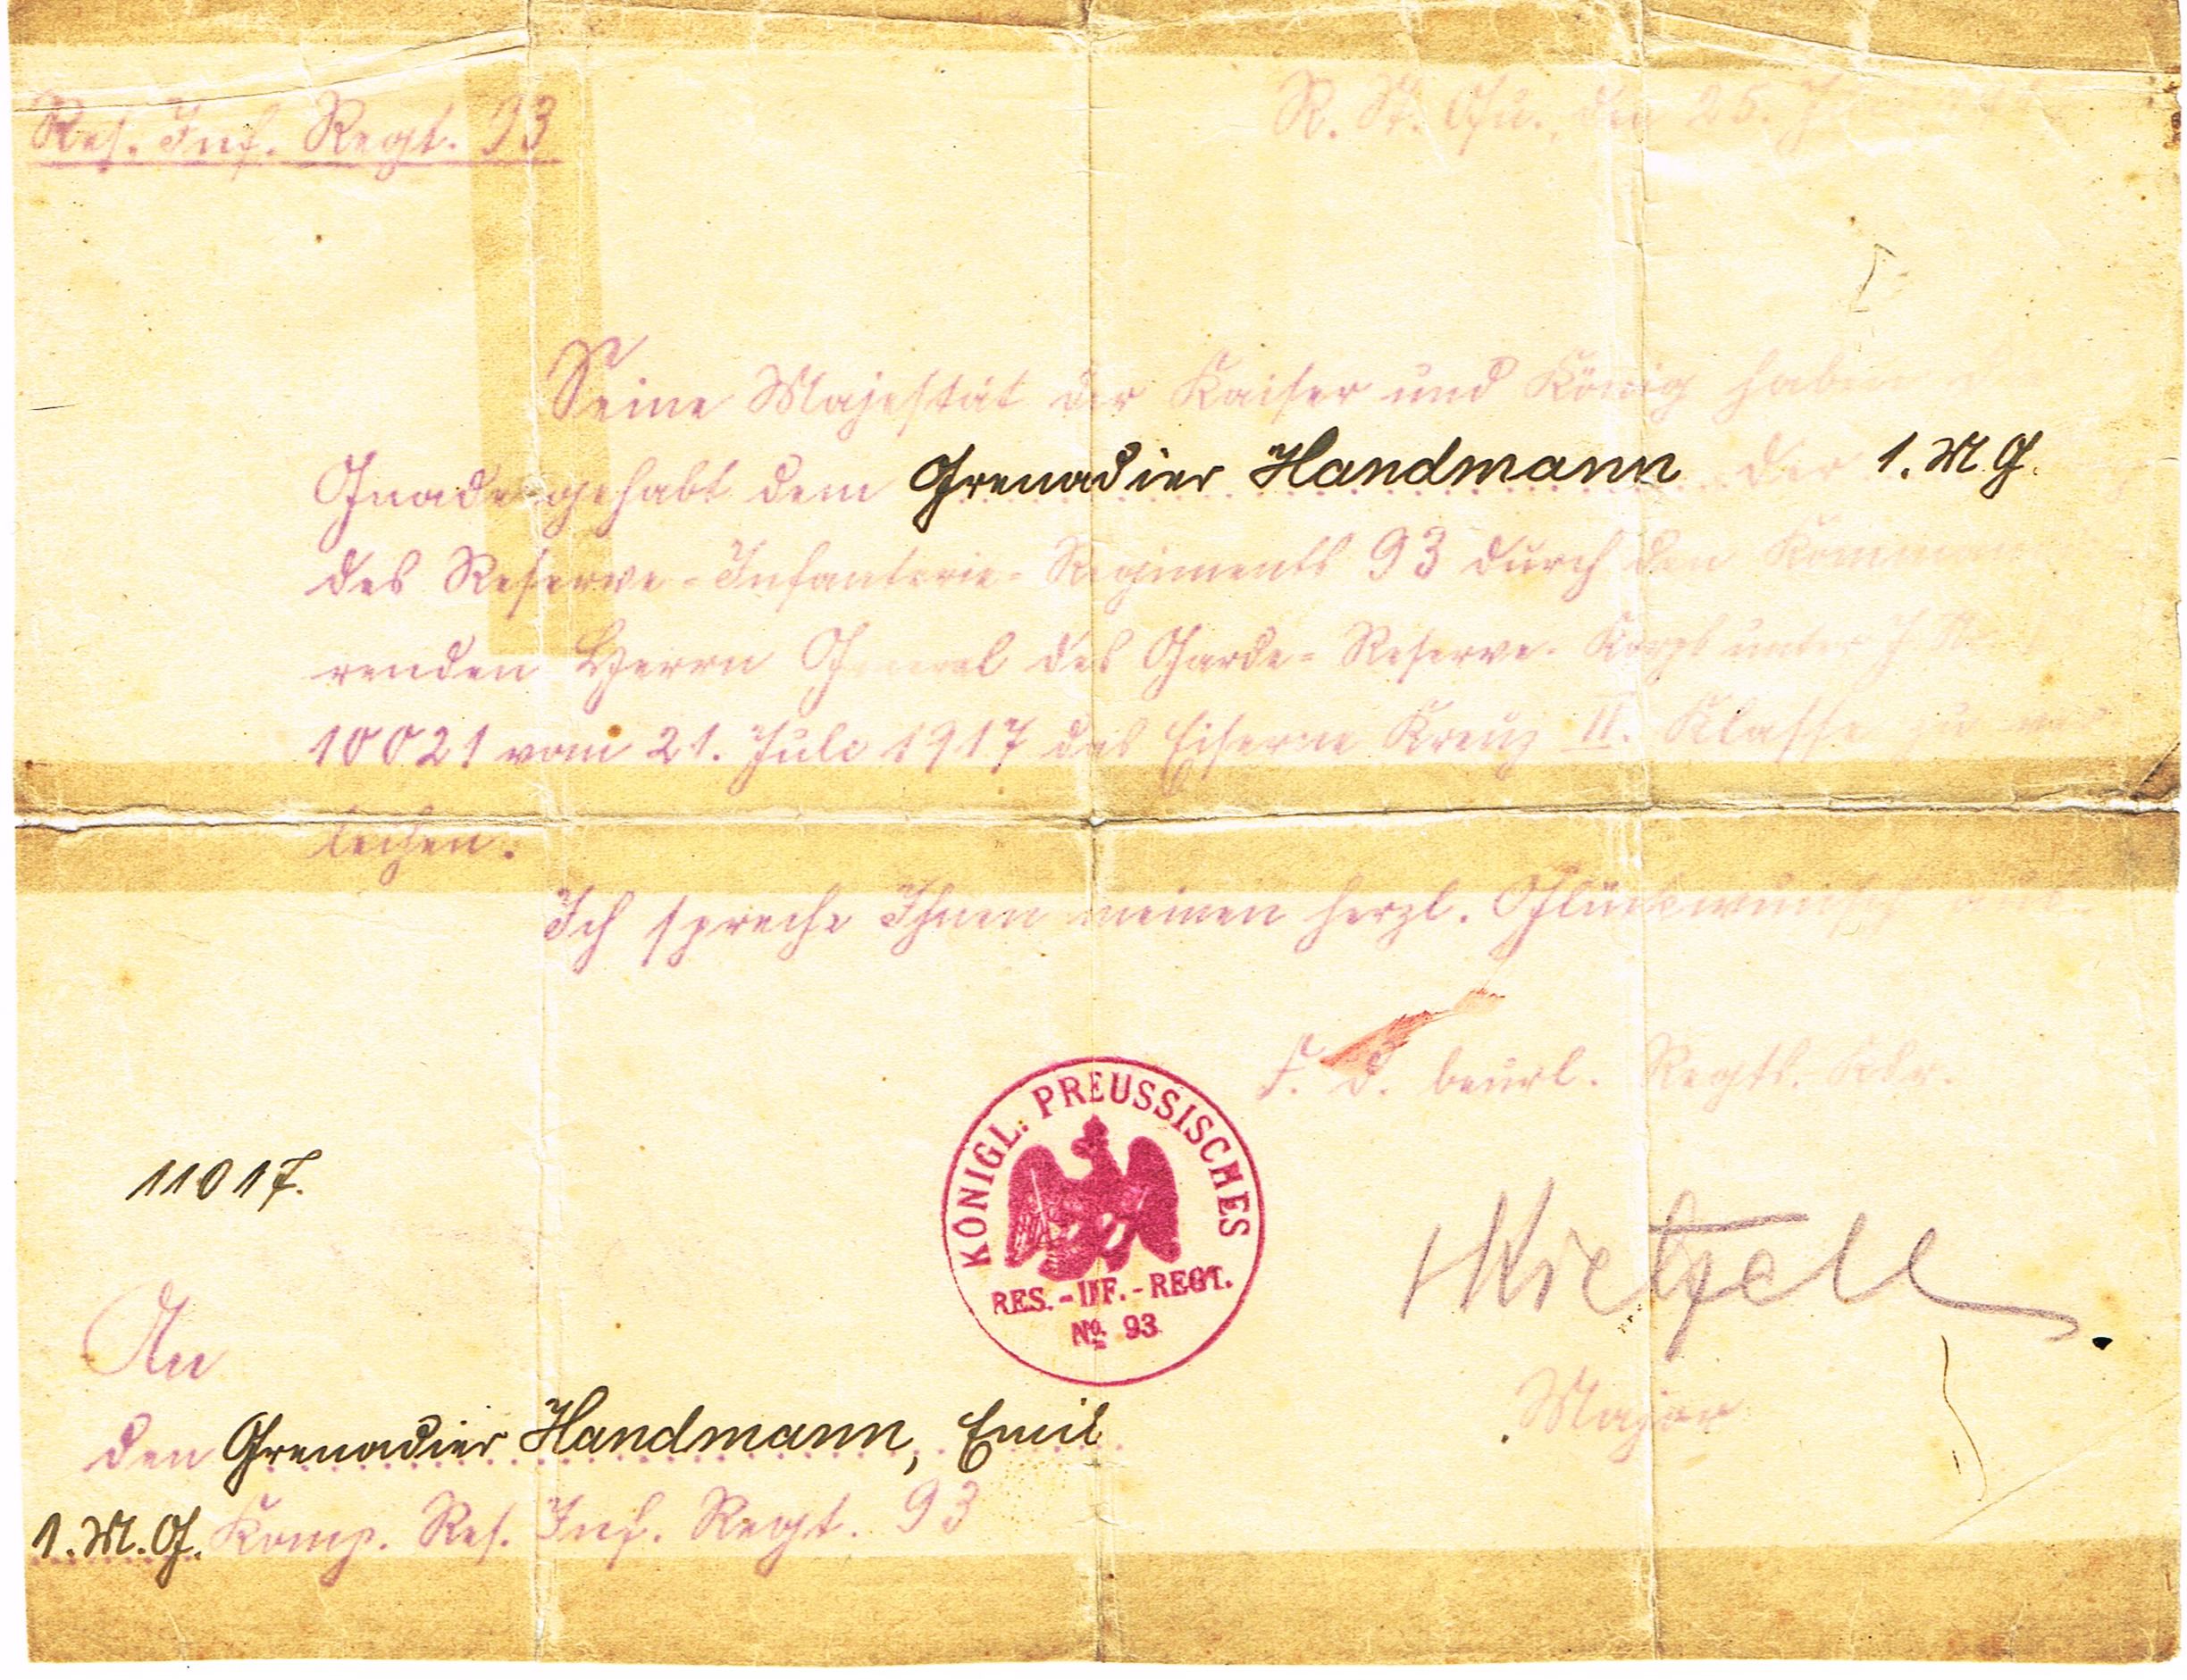 Res. Inf. Regt. 93
R. St. Qu., den 25.
Seine Majestät der Kaiser und König haben die
Gnade gehabt dem Grenadier Handmann der 1. M G.
des Reserve-Infanterie-Regiments 93 durch den Komman
renden Herrn General des Garde-Reserve-Korps unter
10021 vom 21. Juli 1917 das Eiserne Kreuz II. Klasse zu ver
leihen.
Ich spreche Ihnen meinen herzl. Glückwunsch aus.
F. d. beurl. Regts. Kdr.
KÖNIGL. PREUSSISCHES
RES.-INF.-REGT.
No. 93
11017.
Major
An
den Grenadier Handmann, Emil
1. M. G. Komp. Res. Inf. Regt. 93